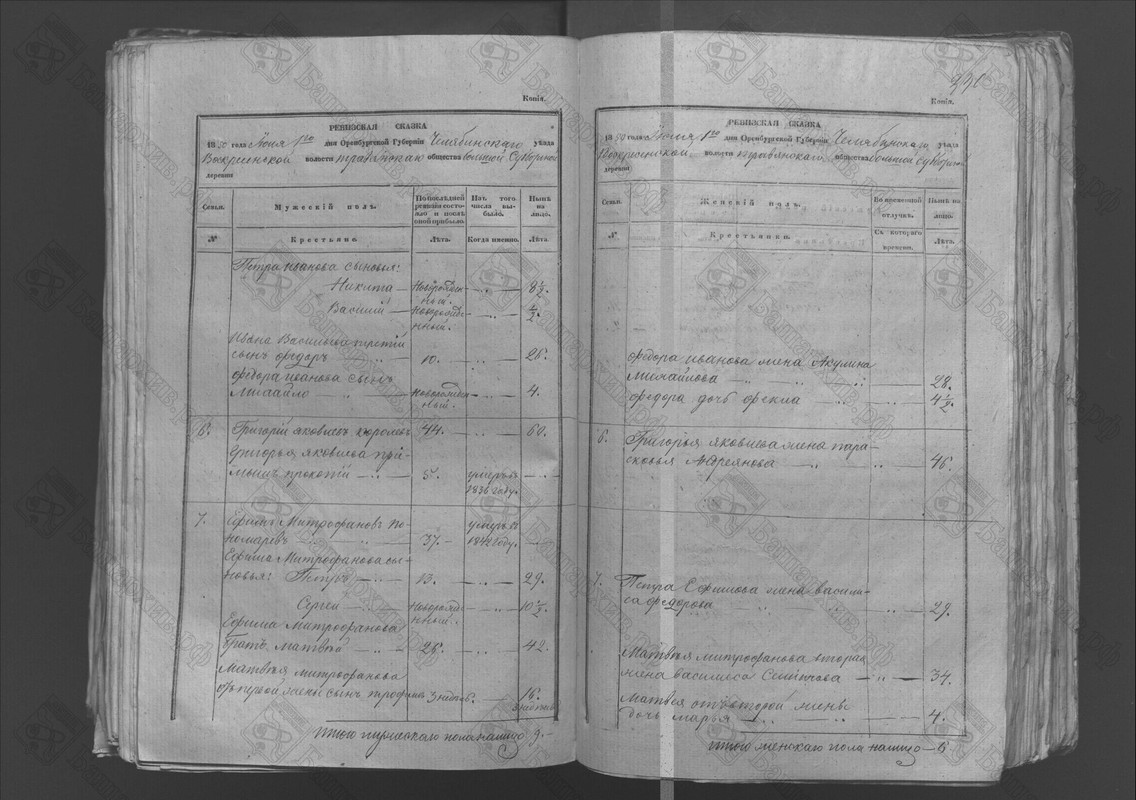 Копія.
РЕВИЗСКАЯ СКАЗКА
1850 года Июня 1го дня Оренбургской Губерніи Челябинскаго уѣзда
Воскресенской волости травянскаго общества большой
деревни
Семьи.
Мужескій полъ.
По послѣдней ревизіи состояло и послѣ оной прибыло.
Изъ того числа выбыло.
Нынѣ на лицо.
№
Крестьяне.
Лѣта.
Когда именно.
Лѣта.
Петра иванова сыновья:
Никита — Новорожденный. — „ — 8½.
Василій — Новорожденный. — „ — ½.
Ивана Васильева третій
сынъ федоръ — „ — 10. — „ — 26.
федора иванова сынъ
Михайло — „ — новорожденный. — „ — 4.
6. Григорій яковлевъ королевъ 44. — „ — 60.
Григорья яковлева прій-
мышъ прокопій — „ — 5. умеръ въ 1836 году. — „ —
7. Ефимъ Митрофановъ По-
номаревъ — „ — 37. — умеръ въ 1842 году. — „ —
Ефима Митрофанова сы-
новья: Петръ — „ — 13. — „ — 29.
Сергей — „ — Новорожденный. — „ — 10½.
Ефима Митрофанова
братъ матвѣй — „ — 26. — „ — 42.
Матвѣя митрофанова
отъ первой жены сынъ трофимъ 3 недель. — „ — 16. 3 недель
Итого мужескаго пола налицо 9. —
331
Копія.
РЕВИЗСКАЯ СКАЗКА
1850 года Июня 1го дня Оренбургской Губерніи Челябинскаго уѣзда
Воскресенской волости травянскаго общества большой
деревни
Семьи.
Женскій полъ.
Во временной отлучкѣ.
Нынѣ на лицо.
№
Крестьянки.
Съ котораго времени.
Лѣта.
федора иванова жена Акулина
михайлова — „ — „ — 28.
федора дочь фекла — „ — 4½.
6. Григорья яковлева жена пара-
сковья Андреянова — „ — „ — 46.
7. Петра Ефимова жена васили-
са федорова — „ — „ — 29.
Матвѣя митрофанова вторая
жена василиса — „ — 34.
Матвея отъ второй жены
дочь марья — „ — „ — 4.
Итого женскаго пола налицо — 6
Башархив.рф